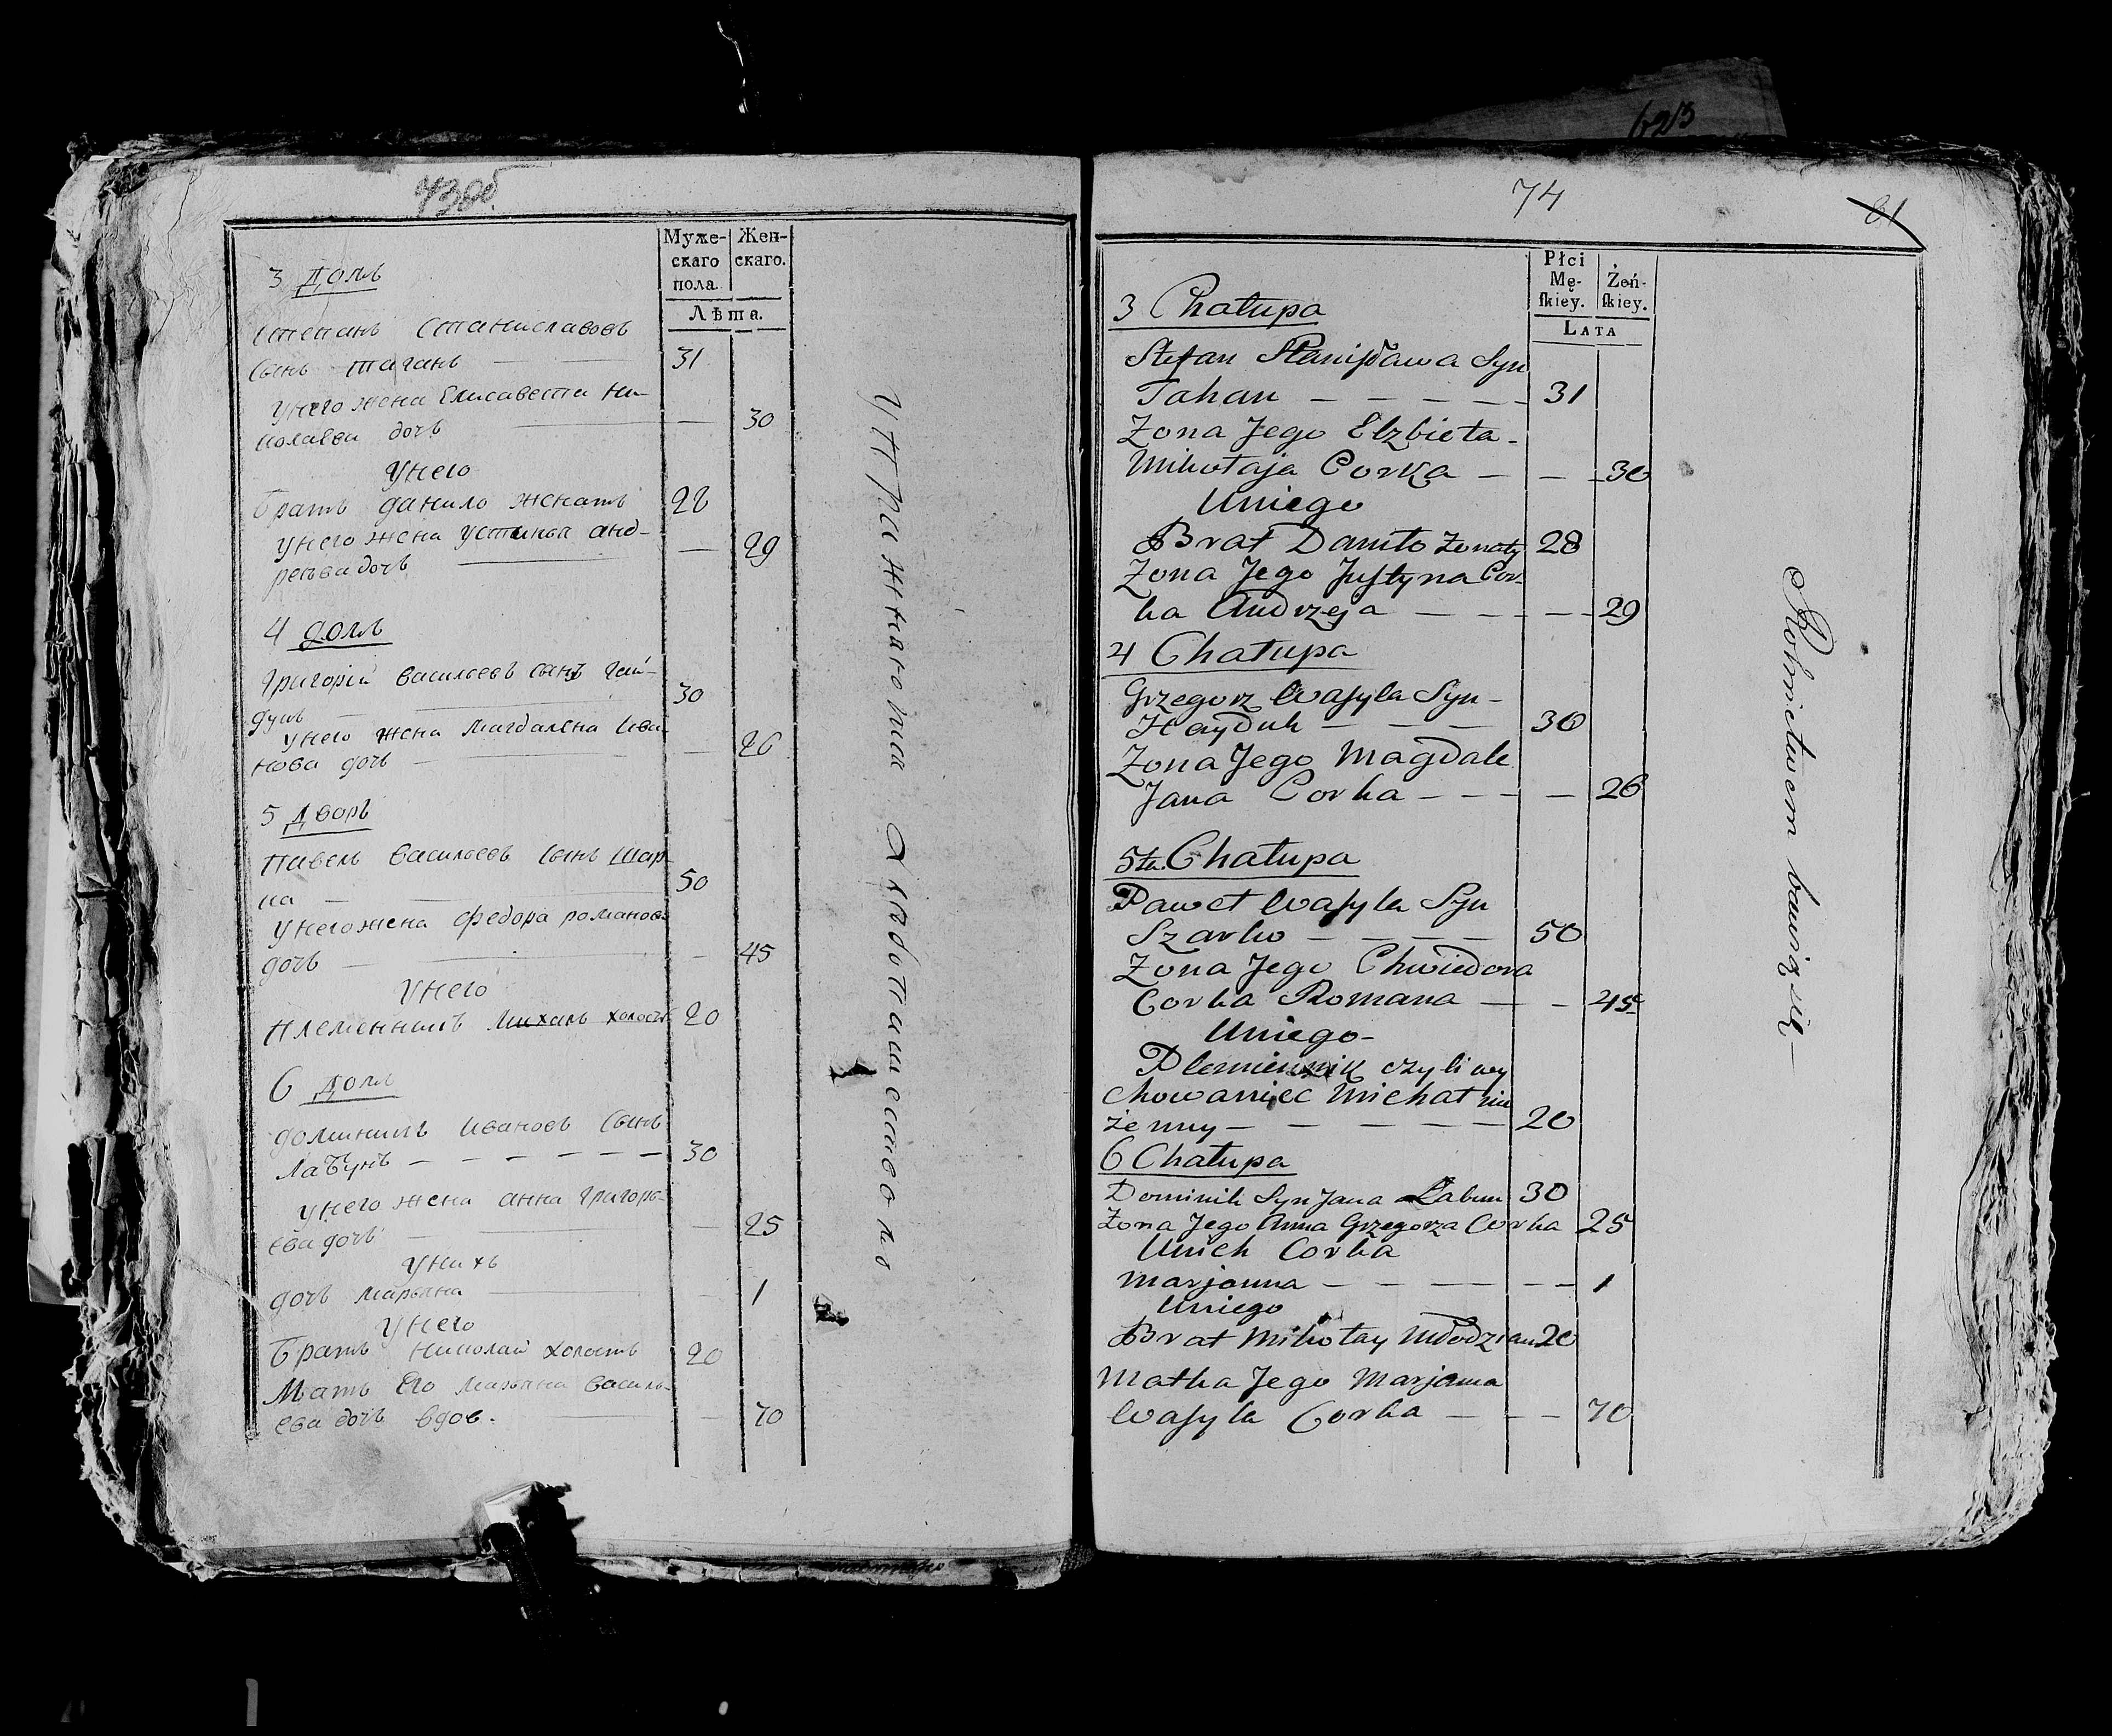 73об.
Муже-
скаго
пола.
Жен-
скаго.
Лѣта.
3 домъ
Степанъ Станиславовъ
сынъ таганъ — 31
унего жена Елисавета Ни-
колаева дочь — 30
унего
братъ данило женатъ 28
унего жена устинья анд-
реева дочь — 29
4 домъ
Григорій васильевъ сынъ гай-
дукъ — 30
унего жена магдалена ива-
нова дочь — 26
5 дворъ
павелъ васильевъ сынъ шар-
ка — 50
унего жена федора романов.
дочь — 45
унего
племенникъ михалъ холостъ 20
6 домъ
доминикъ ивановъ сынъ
лабунъ — — — — — — 30
унего жена анна григорь-
ева дочь — 25
унихъ
дочь марьяна — 1
унего
братъ николай холостъ 20
мать его марьяна василь-
ева дочь вдов. — 70
упражняются хлебопашествомъ
623
74
81
Płci
Mę-
skiey.
Żeń-
skiey.
LATA
3 Chałupa
Stefan Stanisława Syn
Tahan — — — — — 31
Zona Jego Elzbieta -
Mikołaja Corka — — 30
Uniego
Brat Daniło żonaty 28
Zona Jego Justyna Cor-
ka Andrzeja — — — — 29
4 Chałupa
Grzegorz Wasyla Syn -
Hayduk — — — 30
Zona Jego Magdale
Jana Corka — — — — 26
5ta Chałupa
Paweł Wasyla Syn
Szarko — — — — 50
Zona Jego Chwiedora
Corka Romana — — 45
Uniego -
Plemiennik czyli wy
chowaniec Michał nie
żenny — — — — — 20
6 Chałupa
Dominik Syn Jana Łabun 30
Zona Jego Anna Grzegorza Corka 25
Unich Corka
Marjanna — — — — — — 1
Uniego
Brat Mikołay Młodzian 20
Matka Jego Marjanna
Wasyla Corka — — — 70
Rolnictwem bawią się —